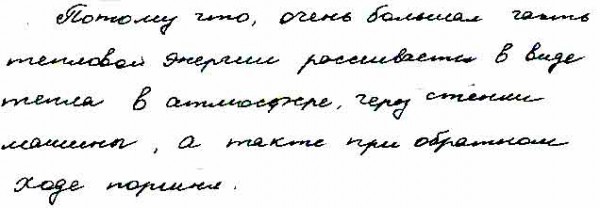 Потому что, очень большая часть
тепловой энергии рассеивается в виде
тепла в атмосфере, через стенки
машины, а также при обратном
ходе поршня.